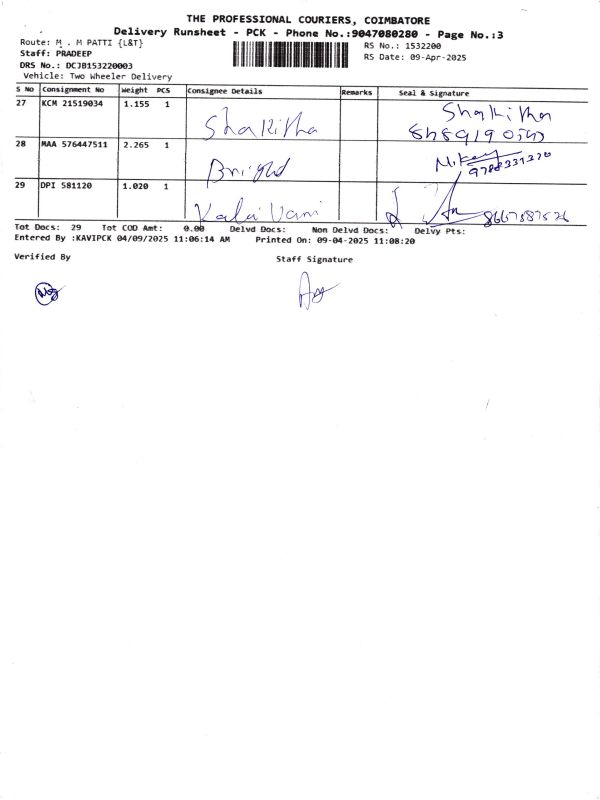 THE PROFESSIONAL COURIERS, COIMBATORE
Delivery Runsheet - PCK - Phone No.:9047080280 - Page No.:3
Route: M . M PATTI {L&T}
RS No.: 1532200
Staff: PRADEEP
RS Date: 09-Apr-2025
DRS No.: DCJB153220003
Vehicle: Two Wheeler Delivery
S No Consignment No Weight PCS Consignee Details Remarks Seal & Signature
27 KCM 21519034 1.155 1 Shakitha Shakitha
28 MAA 576447511 2.265 1 Bright
29 DPI 581120 1.020 1 Kalai Vani
Tot Docs: 29 Tot COD Amt: 0.00 Delvd Docs: Non Delvd Docs: Delvy Pts:
Entered By :KAVIPCK 04/09/2025 11:06:14 AM Printed On: 09-04-2025 11:08:20
Verified By Staff Signature